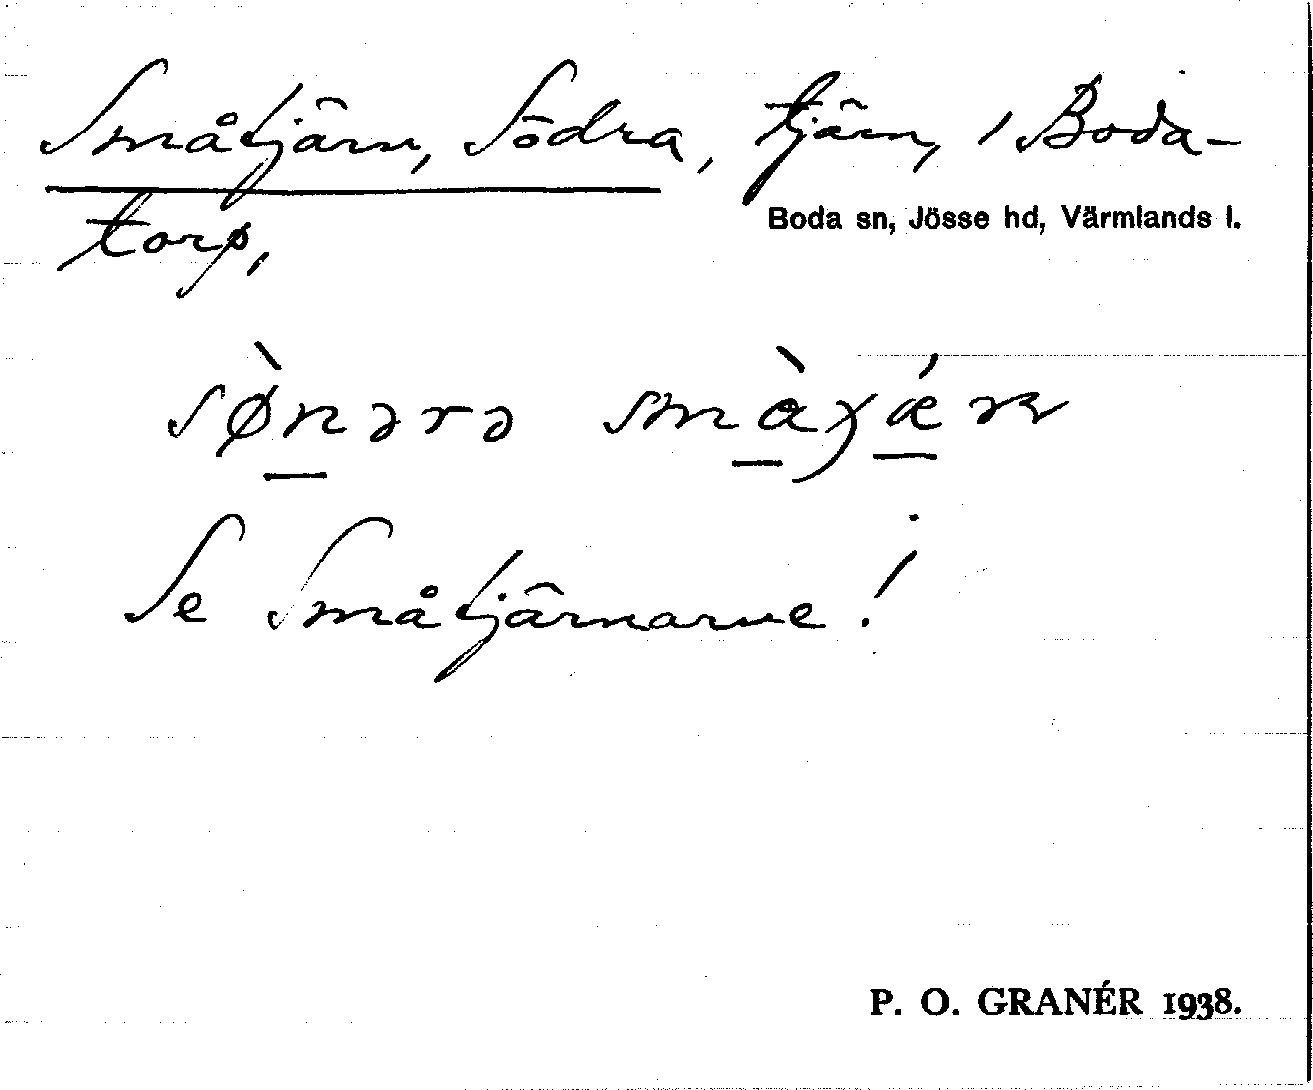 Småtjärn, Södra, tjärn, i Boda-
Boda sn, Jösse hd, Värmlands l.
torp,
Se Småtjärnarne!
P. O. GRANÉR 1938.